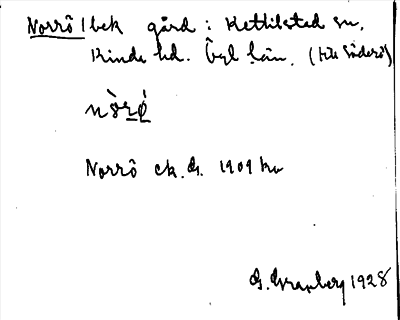 Norrö 1 bek gård : Kettilstad sn.
Kinda hd. Ögl län. (till Söderö)
nòré
Norrö ek. G. 1909 ka
G. Granberg 1928